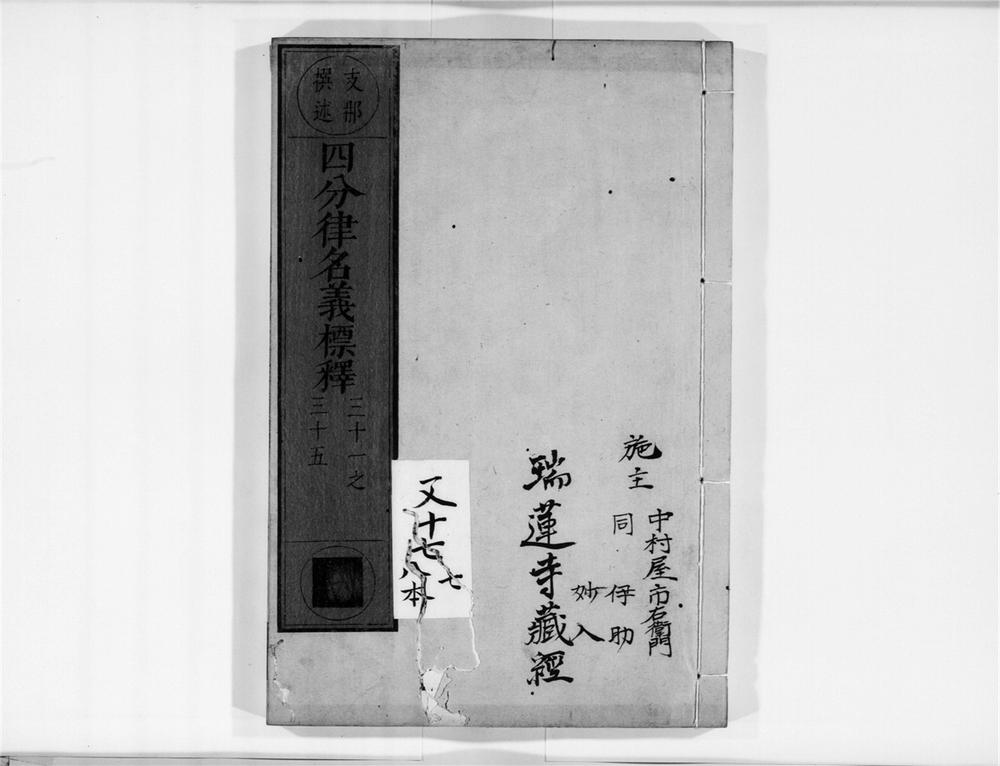 支那
撰述
四分律名義標釋
三十一之
三十五
施主
中村屋市右衛門
同 伊助
妙入
瑞蓮寺藏經
又十七 七
八本